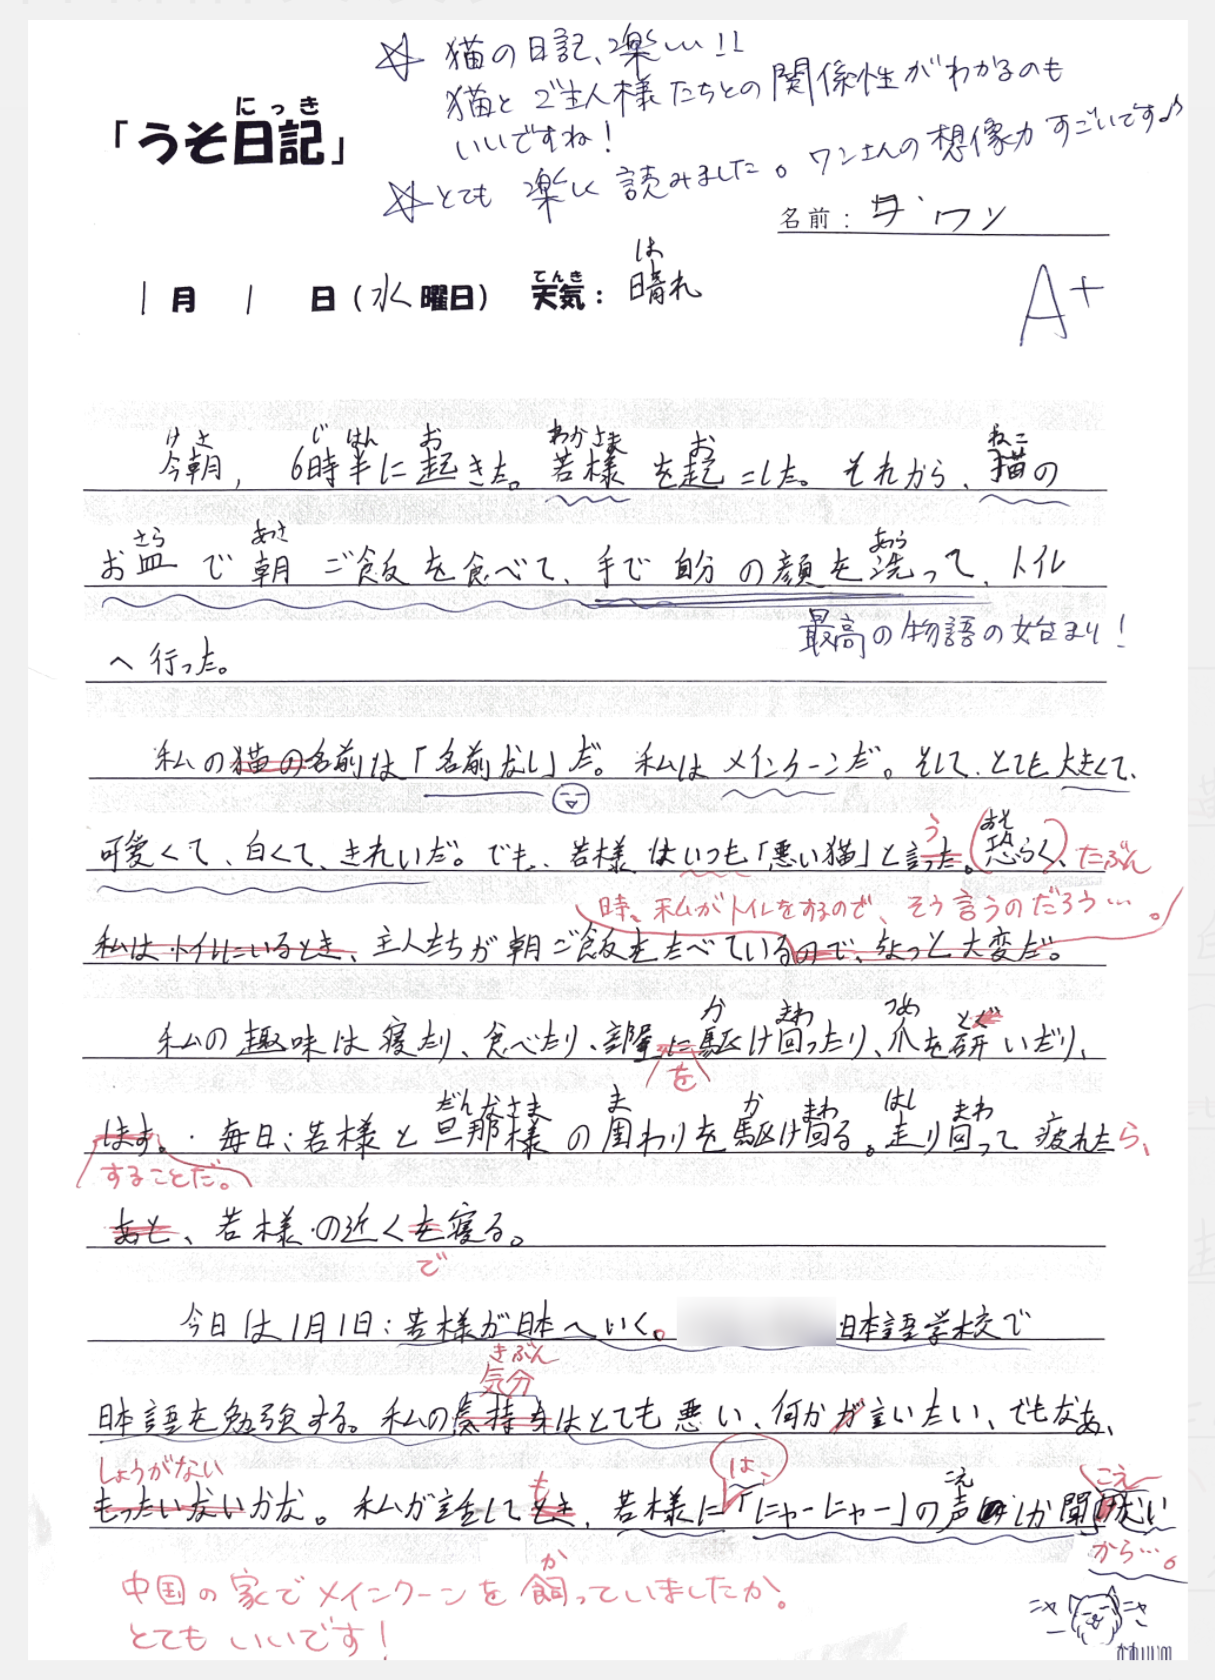 ☆ 猫の日記、楽しい!!
猫とご主人様たちとの関係性がわかるのも
いいですね!
☆とても楽しく読みました。ワンさんの想像力すごいです♪
にっき
「うそ日記」
名前: ダ・ワン
は
てんき
1月 1 日(水曜日) 天気: 晴れ
A+
けさ じ はん お わかさま お ねこ
今朝, 6時半に起きた。若様を起こした。それから、猫の
さら あさ あら
お皿で朝ご飯を食べて、手で自分の顔を洗って、トイレ
最高の物語の始まり!
へ行った。
私の猫の名前は「名前なし」だ。私はメインクーンだ。そして、とても大きくて、
う おそ
可愛くて、白くて、きれいだ。でも、若様はいつも「悪い猫」と言った。(恐らく、たぶん
時、私がトイレをするので、そう言うのだろう…。
私は トイレにいるとき、主人たちが朝ご飯をたべているので、ちょっと大変だ。
か まわ つめ とぎ
私の趣味は寝たり、食べたり、部屋に駆け回ったり、爪を研いだり、
を
だんなさま ま か まわ はし まわ
ます。毎日:若様と旦那様の周わりを駆け回る。走り回って疲れたら、
することだ。
あと、若様の近くを寝る。
で
今日は1月1日:若様が日本へいく。日本語学校で
きぶん
気分
日本語を勉強する。私の気持ちはとても悪い、何かが言いたい、でもなあ、
しょうがない も は、 こえ こえ
もったいないかな。私が話してとき、若様に「にゃーにゃー」の声しか聞
から…。
か
中国の家でメインクーンを飼っていましたか。
とてもいいです!
ニャー ニャー
かわいい